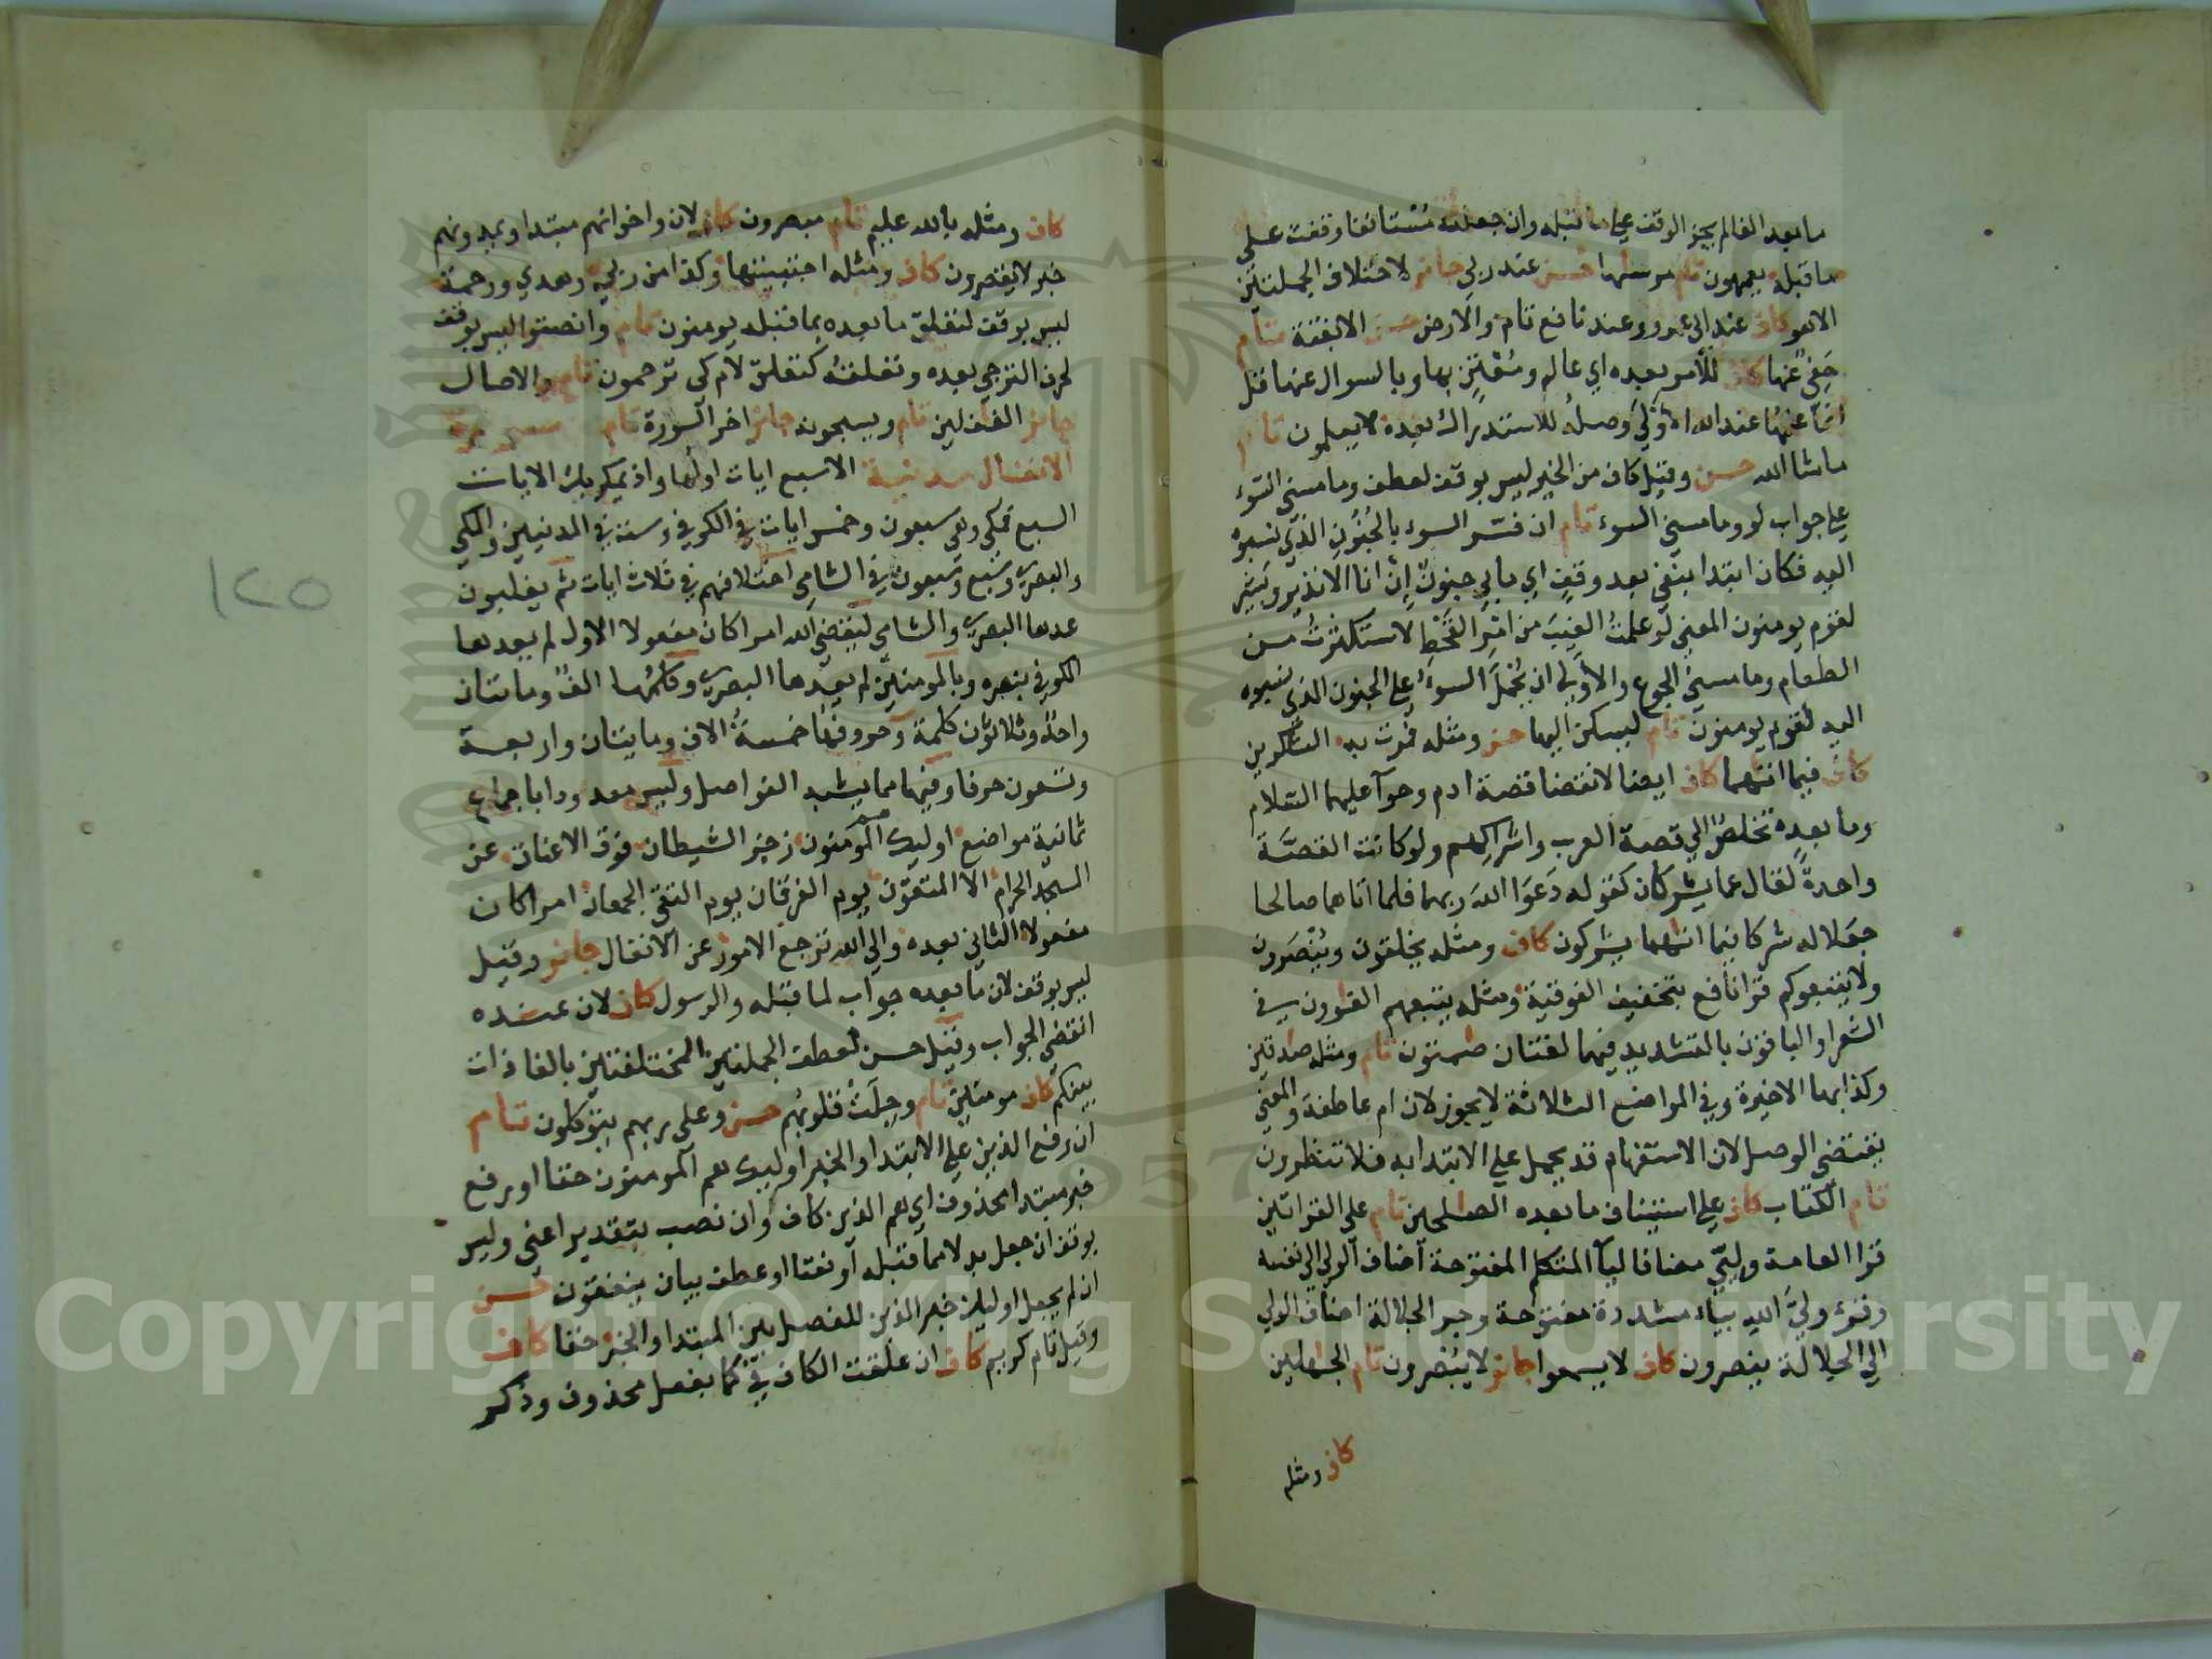 ما بعد الفا لم يجز الوقف على ما قبله وان جعلته مستانفا وقفت على
ما قبله يعمهون تام مرساها حسن عند ربي جائز لاختلاف الجملتين
الا هو كاف عند ابي عمرو وعند نافع تام والارض حسن الا بغتة تام
حفي عنها كاف للأمر بعده اي عالم ومعتن بها وبالسوال عنها قل
انما علمها عند الله الاولى وصله للاستدراك بعده لا يعلمون تام
ما شا الله حسن وقيل كاف من الخير ليس بوقف لعطف وما مسني السوء
على جواب لو وما مسني السوء تام ان فسر السوء بالجنون الذي نسبوه
اليه فكان ابتدا بنفي بعد وقف اي ما بي جنون إن انا الا نذير وبشير
لقوم يومنون المعنى لو علمت الغيب من امر القحط لاستكثرت من
الطعام وما مسني الجوع والاولى ان يحمل السوء على الجنون الذي نسبوه
اليه لقوم يومنون تام ليسكن اليها حسن ومثله فمرت به الشكرين
كاف فيما اتهما كاف ايضا لانقضا قصة ادم وحوآ عليهما السلام
وما بعده تخلص الى قصة العرب واشراكهم ولو كانت القصة
واحدة لقال عما يشركان كقوله دعوا الله ربهما فلما اتاهما صالحا
جعلا له شركا فيما اتهما يشركون كاف ومثله يخلقون وينصرون
ولا يتبعوكم قرا نافع بتخفيف الفوقية ومثله يتبعهم الغوون في
الشعرا والباقون بالتشديد فيهما لغتان صمتون تام ومثله صدقين
وكذا بها الاخيرة وفي المواضع الثلاثة لا يجوز لان ام عاطفة والمعنى
يقتضي الوصل لان الاستفهام قد يحمل على الابتدا به فلا تنظرون
تام الكتاب كاف على استيناف ما بعده الصلحين تام على القراتين
قرا العامة وليي مضافا ليآ المتكلم المفتوحة اضاف الولي الى نفسه
وقرء ولي الله بياء مشددة مفتوحة وجر الجلالة اضاف الولي
الى الجلالة ينصرون كاف لا يسمعوا جائز لا يبصرون تام الجهلين
كاف ومثله
كاف ومثله بالله عليم تام مبصرون كاف لان واخوانهم مبتدا ويمدونهم
خبر لا يقصرون كاف ومثله اجتبيتها وكذا من ربي وهدي ورحمة
ليس بوقف لتعلق ما بعده بما قبله يومنون تام وانصتوا ليس بوقف
لحرف الترجي بعده وتعلقه كتعلق لام كى ترحمون تام والاصال
جائز الغفلين تام ويسبحونه جائز اخر السورة تام سورة
الانفال مدنية الا سبع ايات اولها واذ يمكر بك الايات
السبع فمكي وهي سبعون وخمس ايات في الكوفي وست في المدنيين والمكي
والبصري وسبع وسبعون في الشامي اختلافهم في ثلاث ايات ثم يغلبون
عدها البصري والشامي ليقضي الله امرا كان مفعولا الاول لم يعدها
الكوفي بنصره وبالمومنين لم يعدها البصري وكلمها الف ومايتان
واحد وثلاثون كلمة وحروفها خمسة الاف ومايتان واربعة
وتسعون حرفا وفيها مما يشبه الفواصل وليس معدودا باجماع
ثمانية مواضع اوليك هم المومنون رجز الشيطان فوق الاعناق عن
المسجد الحرام الا المتقون يوم الفرقان يوم التقى الجمعان امرا كان
مفعولا الثاني بعده والى الله ترجع الامور عن الانفال جائز وقيل
ليس بوقف لان ما بعده جواب لما قبله والرسول كاف لان عنده
انقضى الجواب وقيل حسن لعطف الجملتين المختلفتين بالفا ذات
بينكم كاف مومنين تام وجلت قلوبهم حسن وعلى ربهم يتوكلون تام
ان رفع الذين على الابتدا والخبر اوليك هم المومنون حقا او رفع
خبر مبتدا محذوف اي هم الذين كاف وان نصب بتقدير اعني وليس
بوقف ان جعل بدلا مما قبله او نعتا او عطف بيان ينفقون حسن
ان لم يجعل اوليك خبر الذين للفصل بين المبتدا والخبر حقا كاف
وقيل تام كريم كاف ان علقت الكاف في كما بفعل محذوف وذكر
١٢٥
Copyright © King Saud University
1957